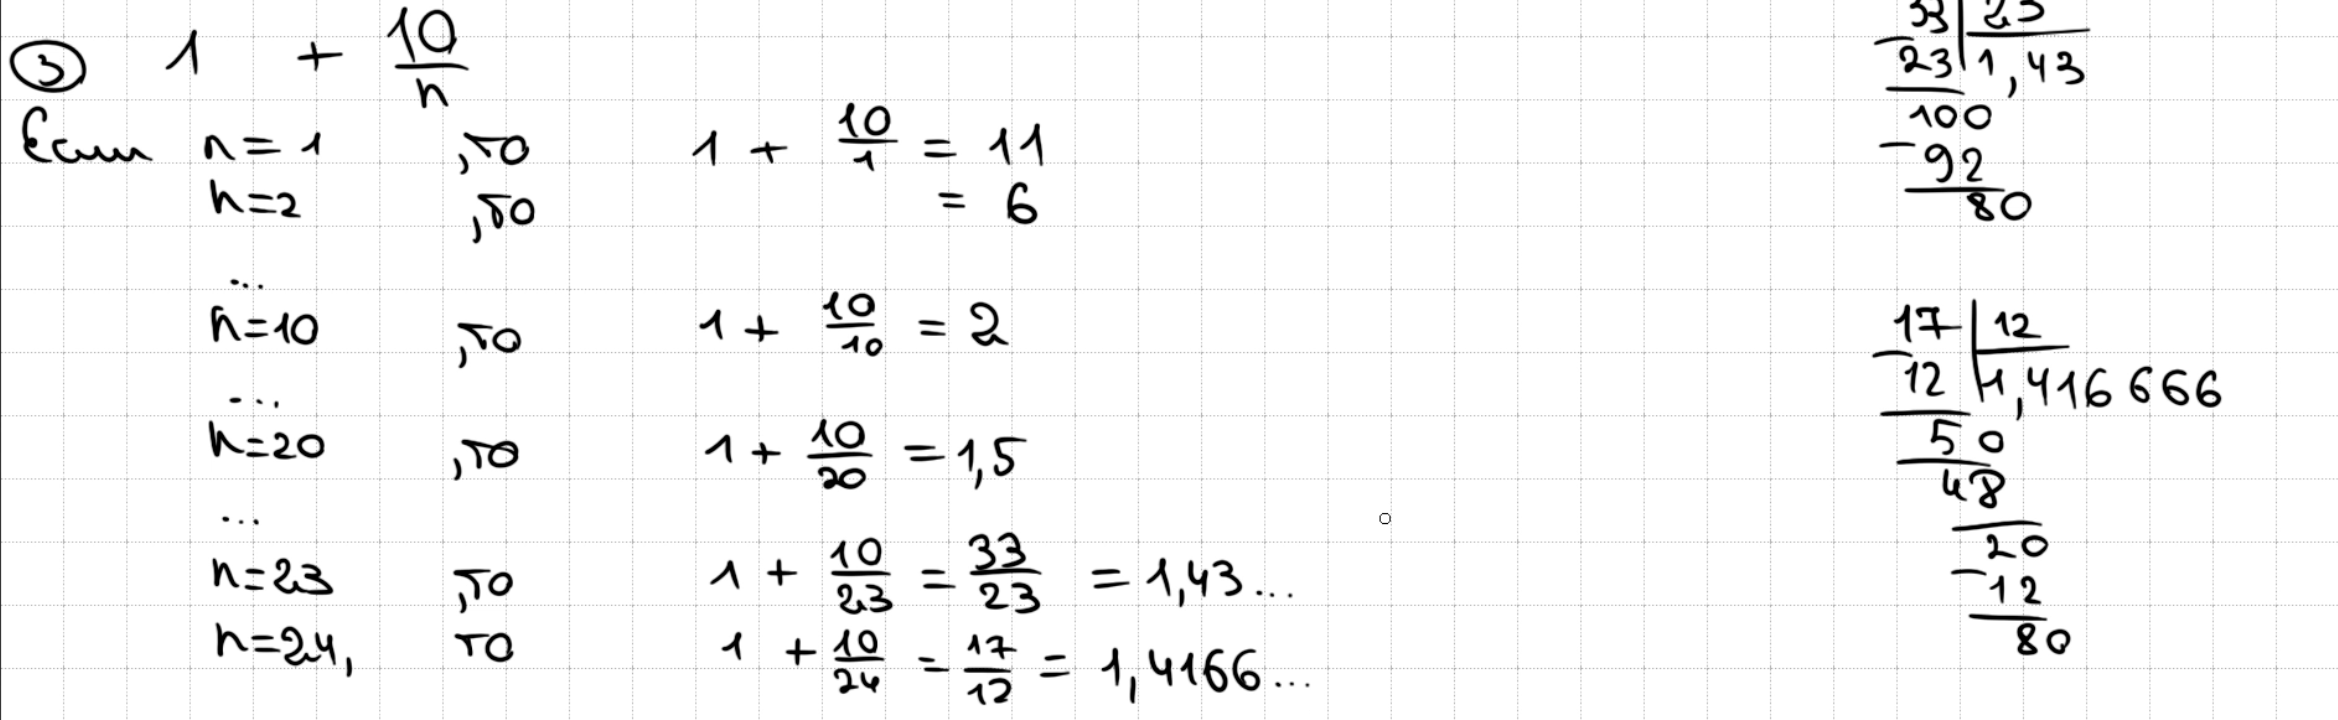 ③ 1 + 10/n
Если n=1 ,то 1 + 10/1 = 11
n=2 ,то = 6
...
n=10 ,то 1 + 10/10 = 2
...
n=20 ,то 1 + 10/20 = 1,5
...
n=23 ,то 1 + 10/23 = 33/23 = 1,43...
n=24, то 1 + 10/24 = 17/12 = 1,4166...
33 | 23
−23 | 1,43
100
−92
80
17 | 12
−12 | 1,416666
50
48
20
−12
80